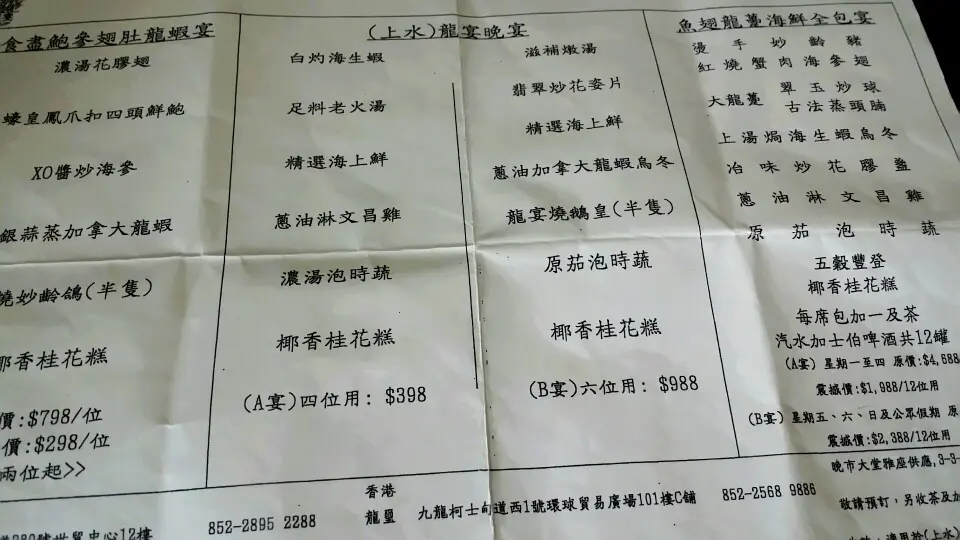 食盡鮑參翅肚龍蝦宴
濃湯花膠翅
蠔皇鳳爪扣四頭鮮鮑
XO醬炒海參
銀蒜蒸加拿大龍蝦
燒妙齡鴿(半隻)
椰香桂花糕
價:$798/位
價:$298/位
兩位起>>
(上水)龍宴晚宴
白灼海生蝦
足料老火湯
精選海上鮮
蔥油淋文昌雞
濃湯泡時蔬
椰香桂花糕
(A宴)四位用: $398
滋補燉湯
翡翠炒花姿片
精選海上鮮
蔥油加拿大龍蝦烏冬
龍宴燒鵝皇(半隻)
原茄泡時蔬
椰香桂花糕
(B宴)六位用: $988
魚翅龍躉海鮮全包宴
燙手妙齡豬
紅燒蟹肉海參翅
大龍躉 翠玉炒球
古法蒸頭腩
上湯焗海生蝦烏冬
冶味炒花膠盞
蔥油淋文昌雞
原茄泡時蔬
五穀豐登
椰香桂花糕
每席包加一及茶
汽水加士伯啤酒共12罐
(A宴) 星期一至四 原價:$4,688
震撼價:$1,988/12位用
(B宴) 星期五、六、日及公眾假期 原
震撼價:$2,388/12位用
晚市大堂雅座供應,3-3-
敬請預訂,另收茶及加
適用於(上水)
280號世貿中心12樓
852-2895 2288
香港
龍璽
九龍柯士甸道西1號環球貿易廣場101樓C舖
852-2568 9886